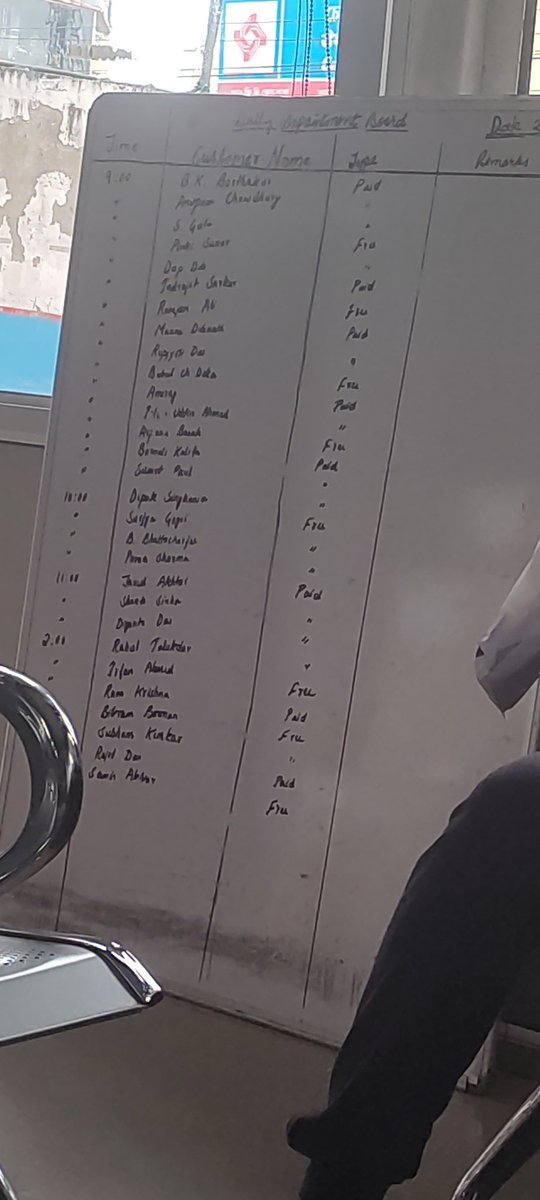 Daily Appointment Board Date 2
Time Customer Name Type Remarks
9:00 B.K. Borthakur Paid
" Anupam Chowdhury "
" S. Gala "
" Sunar Free
" Das "
" Indrajit Sarkar Paid
" Ranjan Ali Free
" Manna Debnath Paid
" Das "
" Babul Ch Deka Free
" Anurag Paid
" Uddin Ahmed "
" Barnali Kalita Free
" Sumit Paul Paid
10:00 Dipak Singhania "
" Surjya Gogoi "
" B. Bhattacharjee Free
" Sharma "
11:00 Javed Akhtar "
" Sinha Paid
" Dipanta Das "
2:00 Rahul Talukdar "
" Irfan Ahmed "
" Ram Krishna Free
Bikram Barman Paid
Subham Kumar Free
Rajib Das "
Akhtar Paid
Free